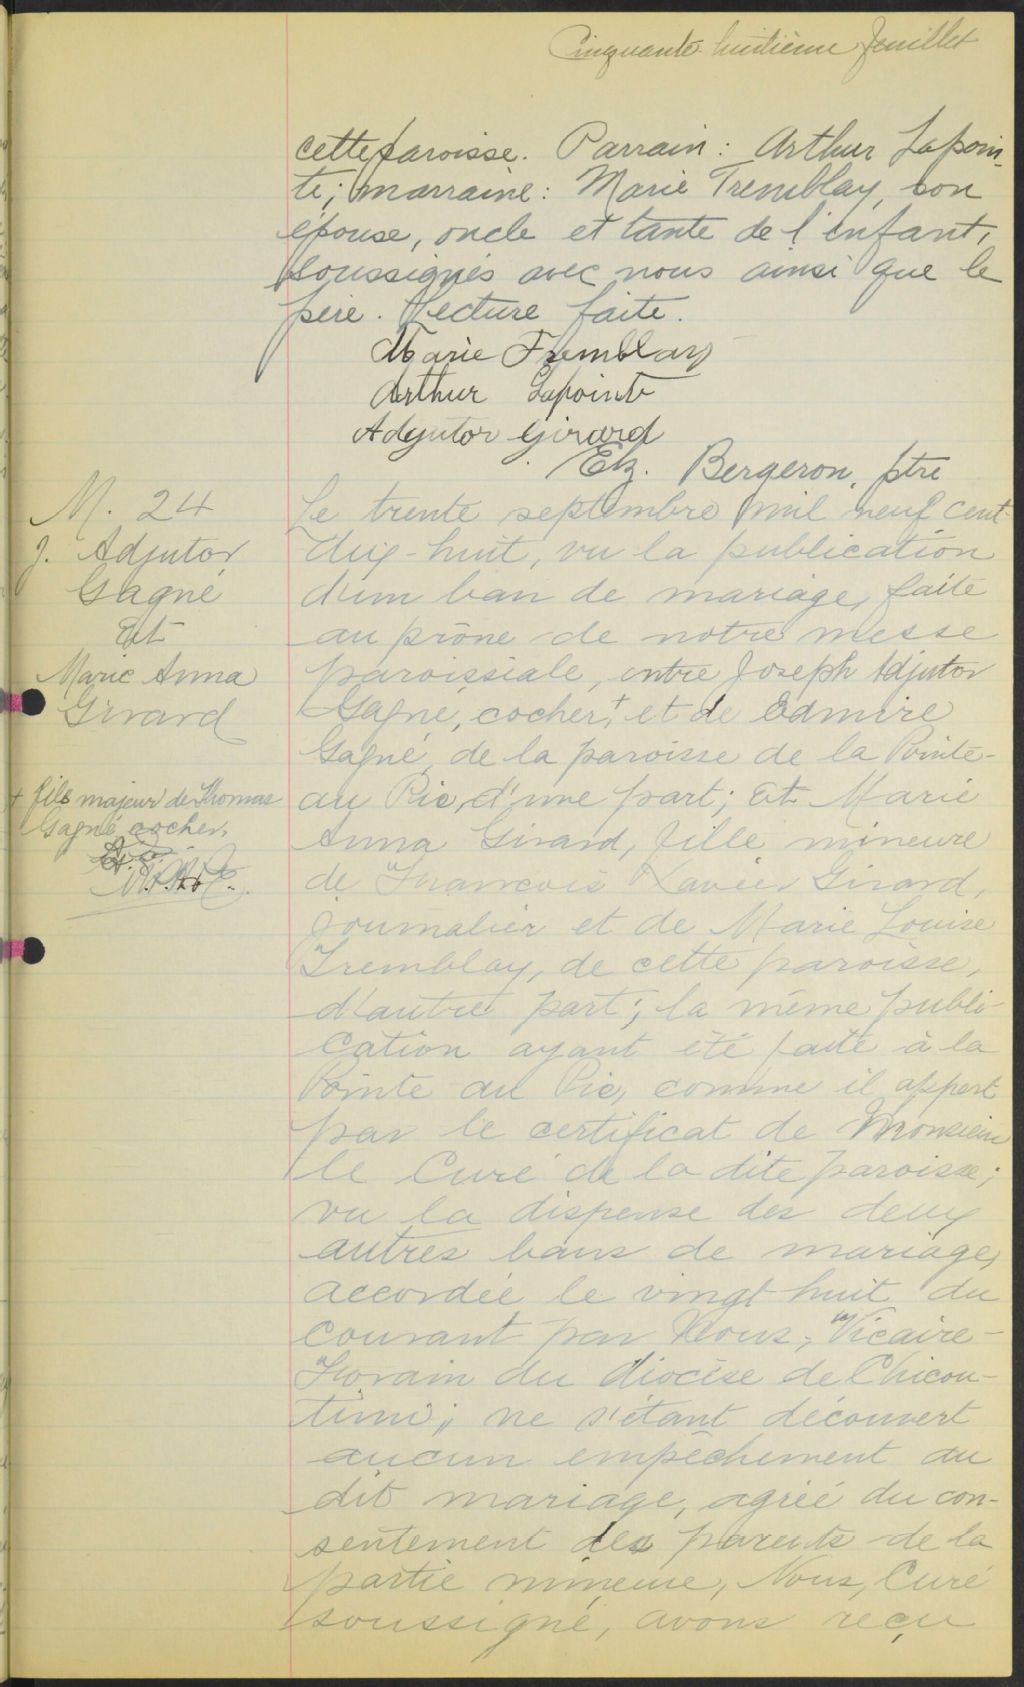 Cinquante huitième feuillet
cette paroisse. Parrain: Arthur Lapoin-
te; marraine: Marie Tremblay, son
épouse, oncle et tante de l'enfant,
soussignés avec nous ainsi que le
père. Lecture faite.
Marie Tremblay
Arthur Lapointe
Adjutor Girard
Elz. Bergeron, ptre
M. 24
J. Adjutor
Gagné
Et
Marie Anna
Girard
+ fils majeur de Thomas
Gagné, cocher.
Le trente septembre mil neuf cent
dix-huit, vu la publication
d'un ban de mariage, faite
au prône de notre messe
paroissiale, entre Joseph Adjutor
Gagné, cocher,+ et de Edmire
Gagné, de la paroisse de la Pointe-
au Pic, d'une part; Et Marie
Anna Girard, fille mineure
de François Xavier Girard,
journalier et de Marie Louise
Tremblay, de cette paroisse,
d'autre part; la même publi-
cation ayant été faite à la
Pointe au Pic, comme il appert
par le certificat de Monsieur
le Curé de la dite paroisse;
vu la dispense des deux
autres bans de mariage,
accordée le vingt huit du
courant par Nous, Vicaire-
Forain du diocèse de Chicou-
timi; ne s'étant découvert
aucun empêchement au
dit mariage, agréé du con-
sentement des parents de la
partie mineure, Nous, Curé
soussigné, avons reçu